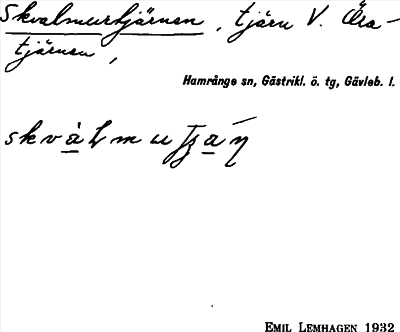 Skvalmurtjärnen, tjärn V. Öra-
tjärnen,
Hamrånge sn, Gästrikl. ö. tg, Gävleb. l.
EMIL LEMHAGEN 1932